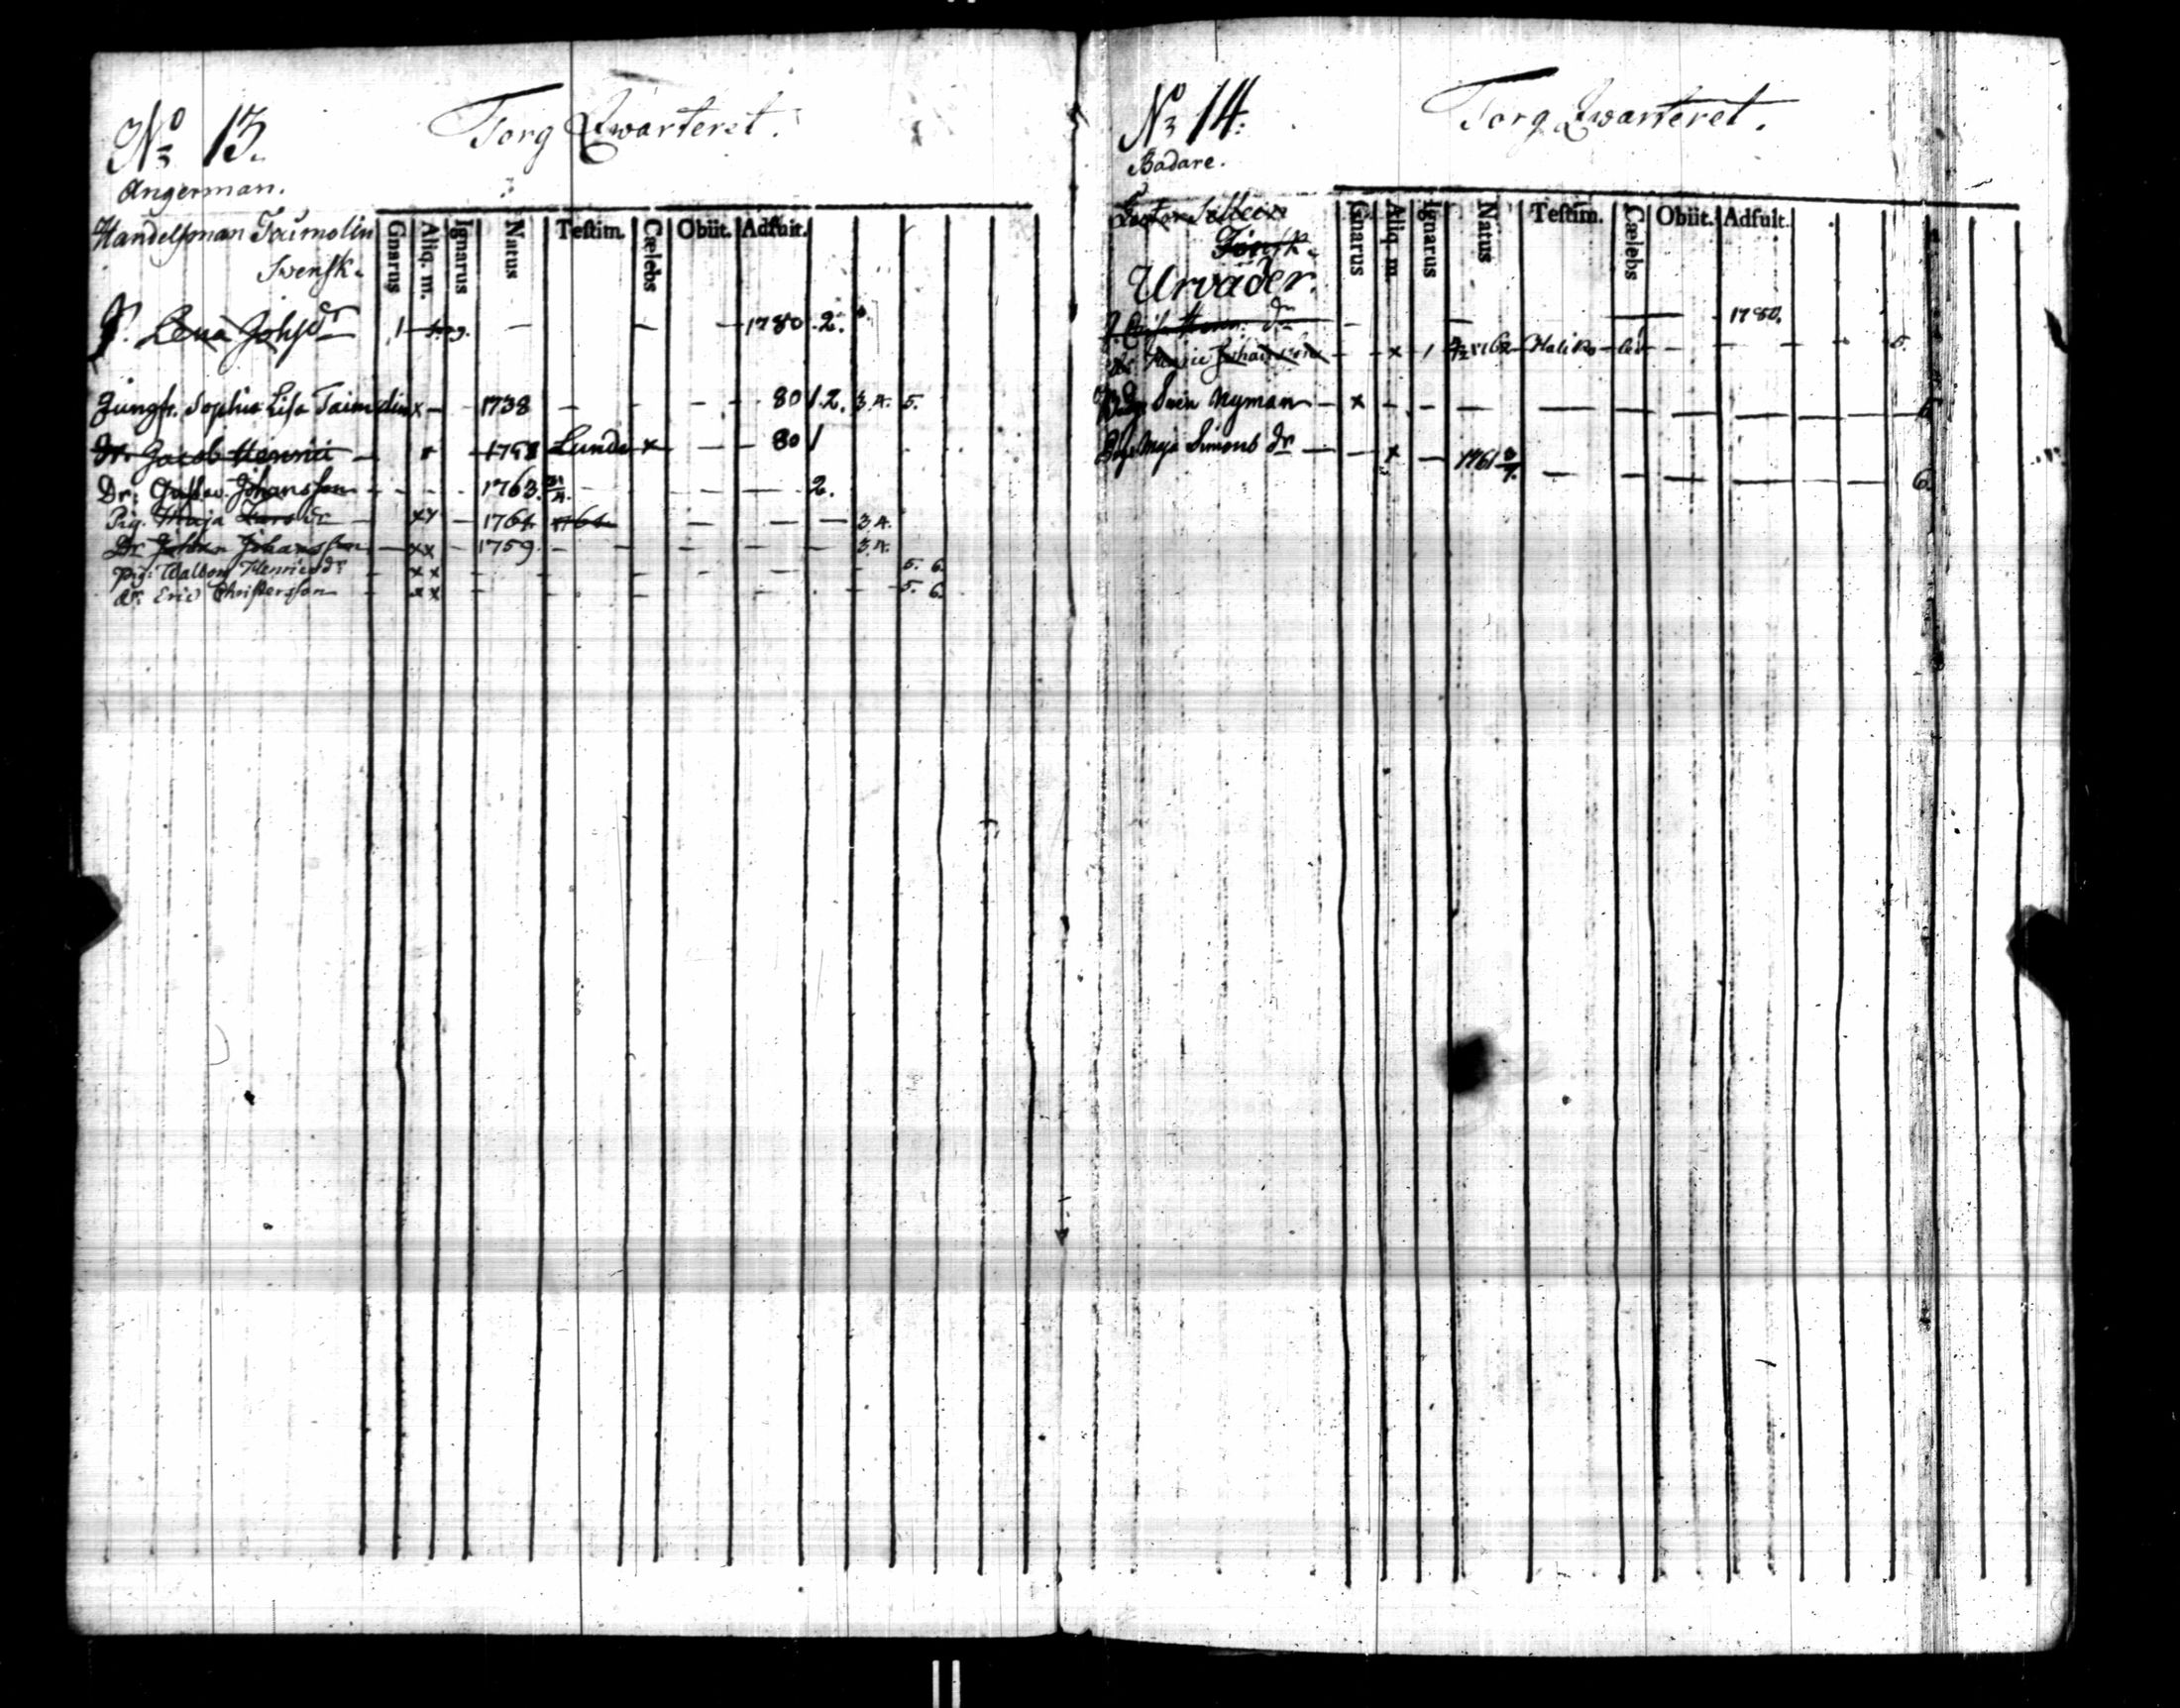 No 13. Torg Qwarteret.
Angerman.
Handelsman Taimolin
Swensk.
Gnarus Aliq. m. Ignarus Natus Testim. Cælebs Obiit. Adfuit.
P. Lena Johsdr 1 — — — 1780. 2.
Jungfr. Sophia Lisa Taimolin x — 1738 — — — 80 1. 2. 3. 4. 5.
Dr. Jacob Henric — 1758 Lundo x — — 80 1
Dr. Gustav Johansson - - - 1763. 21/4. - - — — 2.
Pig. Maja Larsdr — xx — 1764 1764 — — — 3. 4.
Dr Johan Johansson — xx — 1759 — — — — — 3. 4.
Pig: Walborg Henricsdr — xx — — — — — — 5. 6.
dr. Eric Christersson — xx — — — — — — 5. 6.
No 14. Torg Qwarteret.
Badare.
Finsk.
Urvader.
Gnarus Aliq. m. Ignarus Natus Testim. Cælebs Obiit. Adfuit.
dr — — — 1780.
x 1 Haliko — — — 5.
Sven Nyman — x — — — — — — 6
Pig. Maja Simons dr — — x — 1761 — — — — — 6.